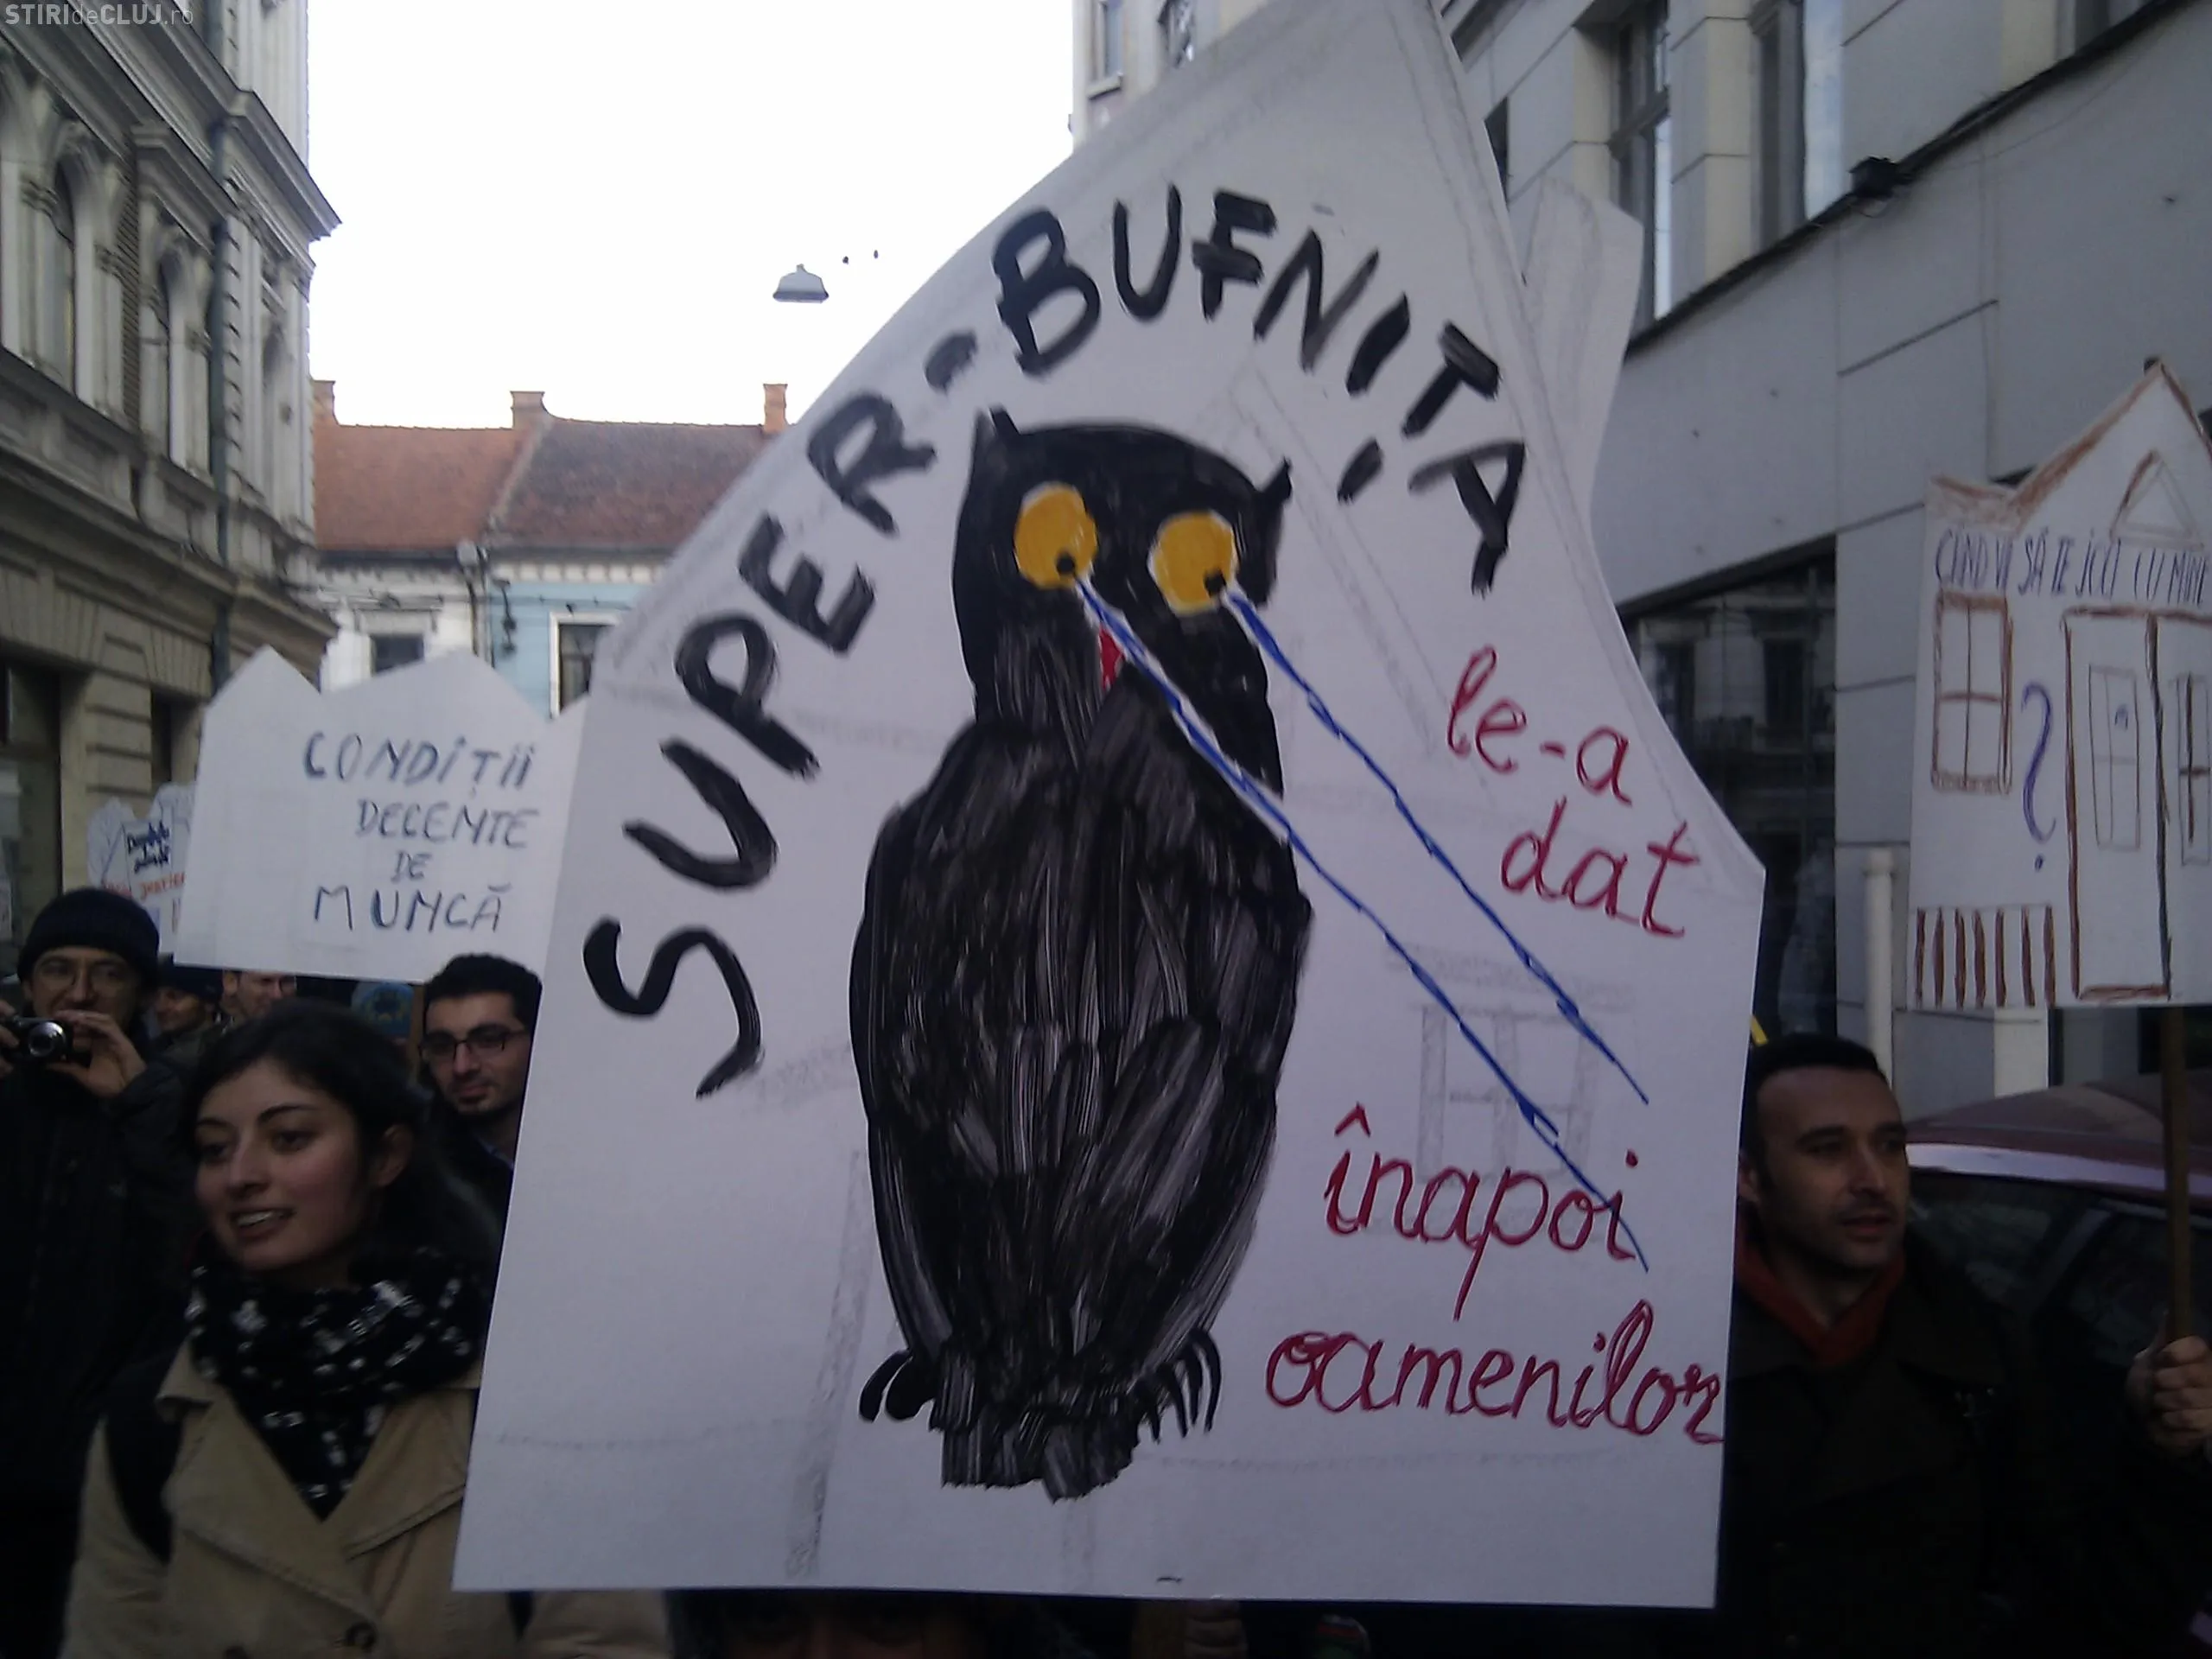 STIRIdeCLUJ.ro
SUPER-BUFNIȚA
le-a
dat
înapoi
oamenilor
CONDIȚII
DECENTE
DE
MUNCĂ
CÎND VI SĂ TE JOCI CU MINE
?